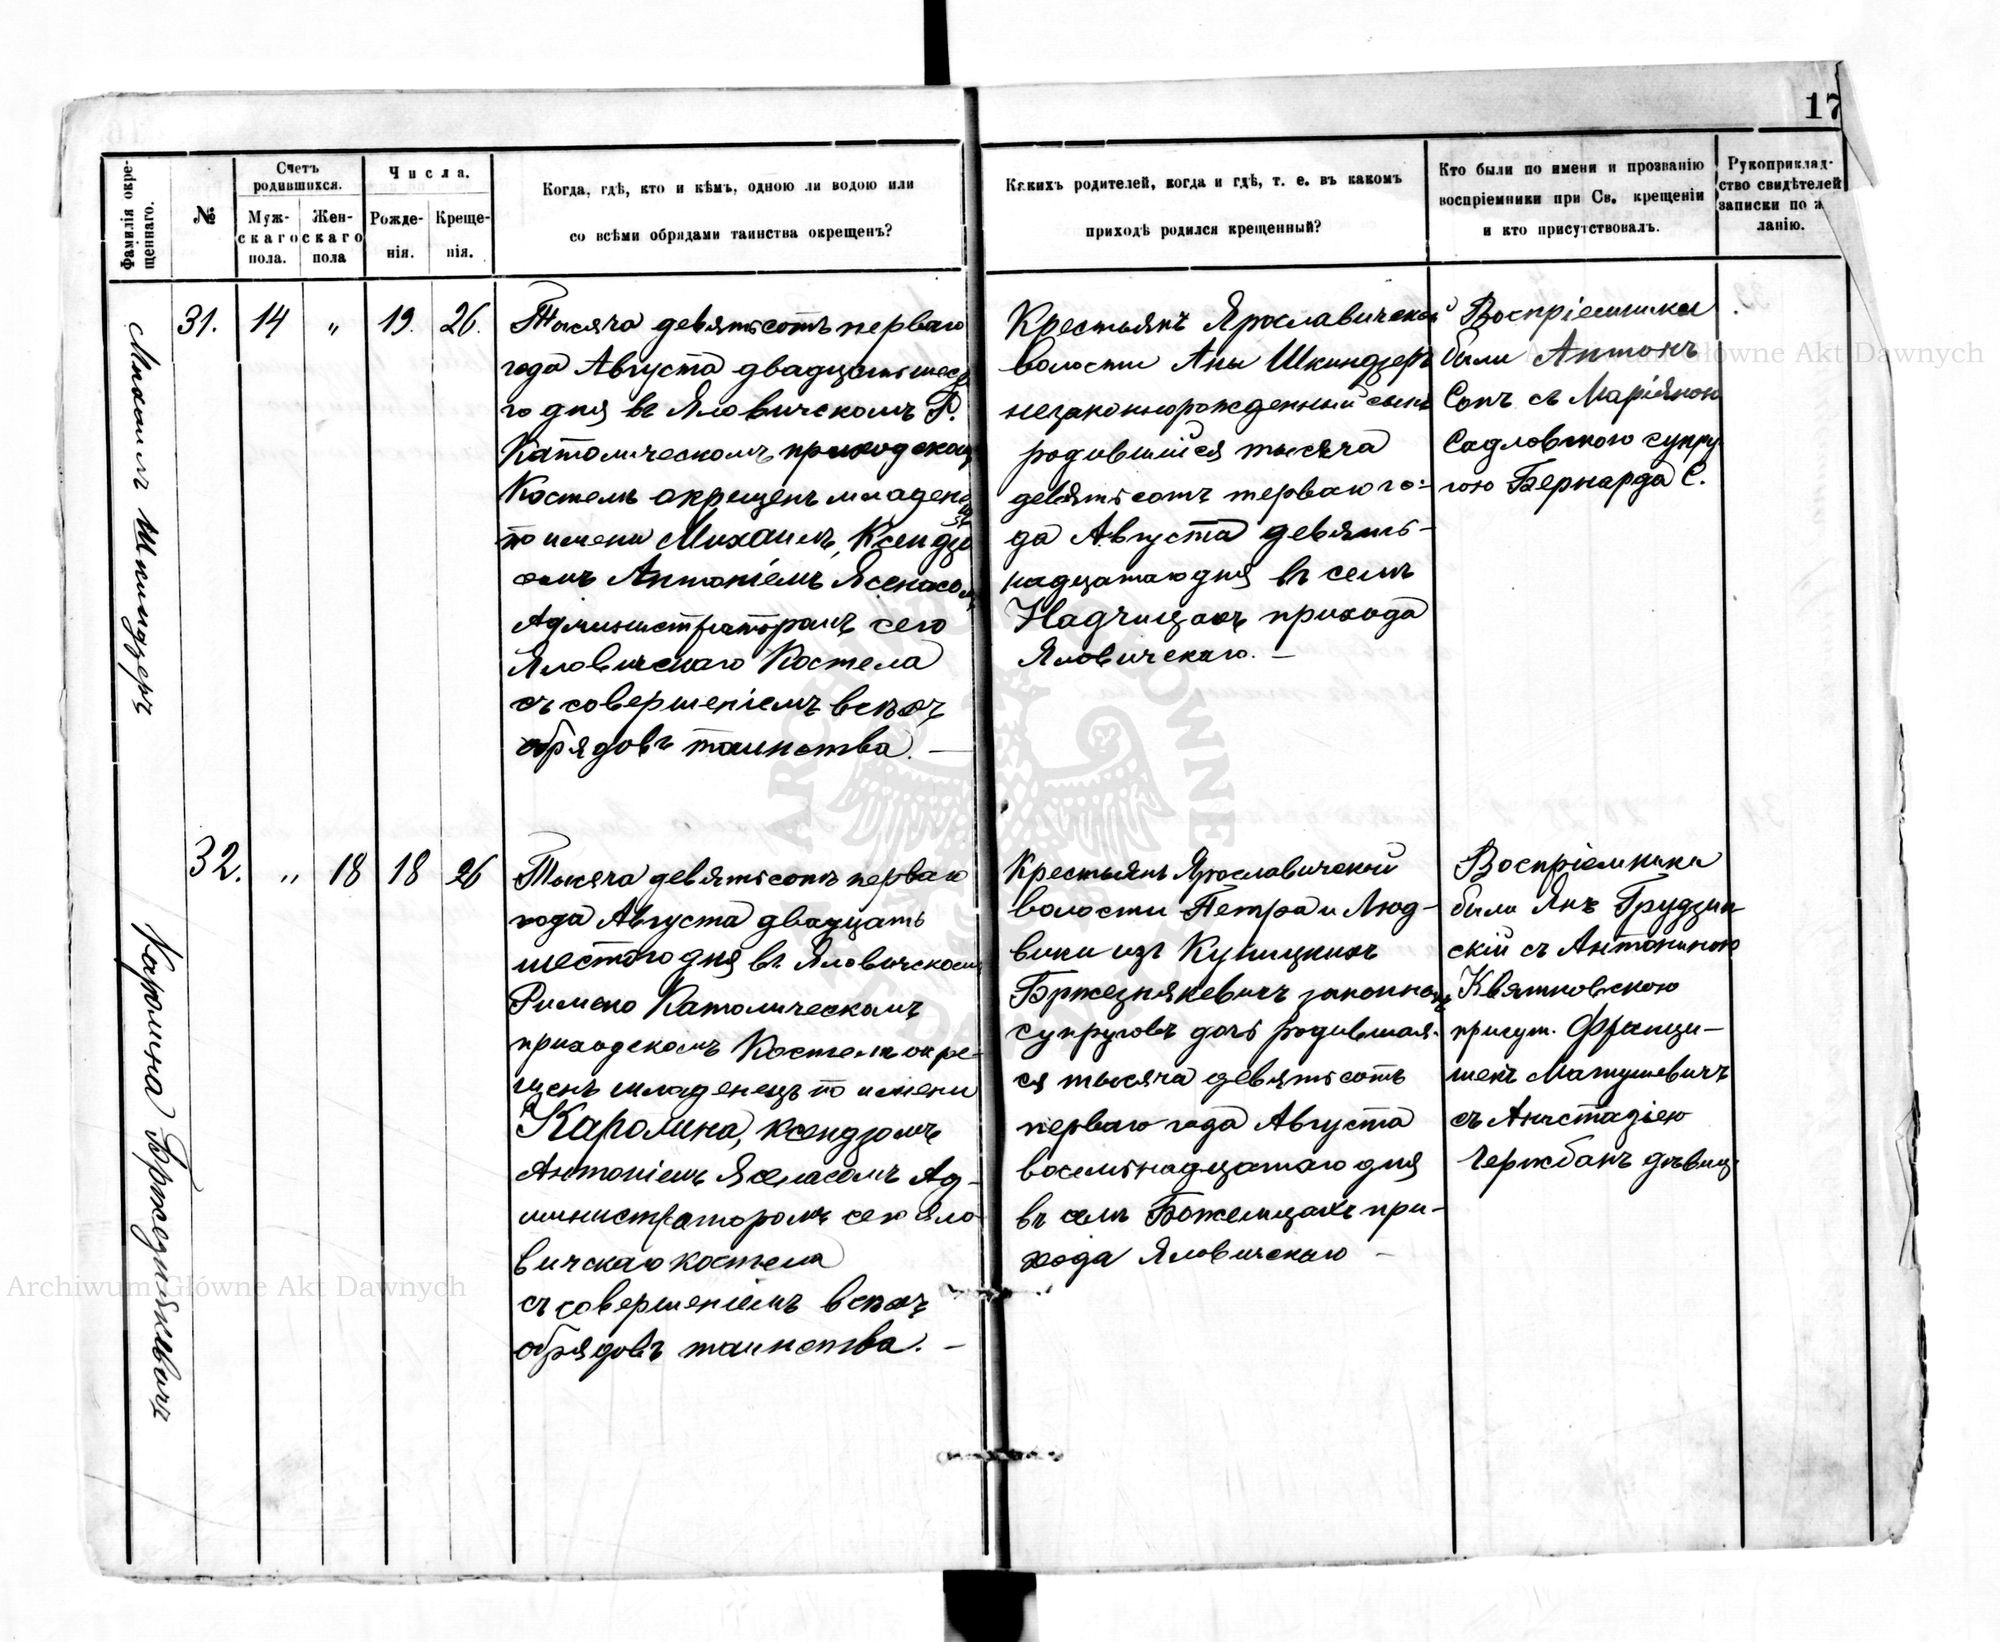 17
Фамилія окре-
щеннаго.
№
Счетъ
родившихся.
Муж-
скаго
пола.
Жен-
скаго
пола
Числа.
Рожде-
нія.
Креще-
нія.
Когда, гдѣ, кто и кѣмъ, одною ли водою или
со всѣми обрядами таинства окрещенъ?
Какихъ родителей, когда и гдѣ, т. е. въ какомъ
приходѣ родился крещенный?
Кто были по имени и прозванію
воспріемники при Св. крещеніи
и кто присутствовалъ.
Рукоприклад-
ство свидѣтелей
записки по
ланію.
Михаилъ Шкиндеръ
31.
14
"
19.
26.
Тысяча девятьсотъ перваго
года Августа двадцать шест
го дня въ Яловичскомъ Р.
Католическомъ приходском
Костелѣ окрещенъ младенец
по имени Михаилъ, Ксендз
омъ Антоніемъ Ясенасом
Администраторомъ сего
Яловичскаго Костела
съ совершеніемъ всѣхъ
обрядовъ таинства. —
Крестьянъ Ярославичской
волости Аны Шкиндеръ
незаконнорожденный сынъ
родившійся тысяча
девятьсотъ перваго го-
да Августа девять-
надцатаго дня въ селѣ
Надчицахъ прихода
Яловичскаго. —
Воспріемники
были Антонъ
Сопъ съ Маріяною
Садловскою супру
гою Бернарда С.
Каролина Бржезнякевичъ
32.
"
18
18
26
Тысяча девятьсотъ перваго
года Августа двадцать
шестого дня въ Яловичском
Римско Католическомъ
приходскомъ Костелѣ окре-
щенъ младенецъ по имени
Каролина, ксендзомъ
Антоніемъ Ясенасомъ Ад-
министраторомъ сего Яло
вичскаго костела
съ совершеніемъ всѣхъ
обрядовъ таинства. —
Крестьянъ Ярославичской
волости Петра и Люд-
вики изъ Купицкихъ
Бржезнякевичъ законныхъ
супруговъ дочь родившая-
ся тысяча девятьсотъ
перваго года Августа
восемьнадцатаго дня
въ селѣ Божемцахъ при-
хода Яловичскаго —
Воспріемники
были Янъ Грудзин
скій съ Антониною
Квятковскою
присут. Франци-
шекъ Матушевичъ
съ Анастазіею
Гержбанъ дѣвиц
Archiwum Główne Akt Dawnych
Główne Akt Dawnych